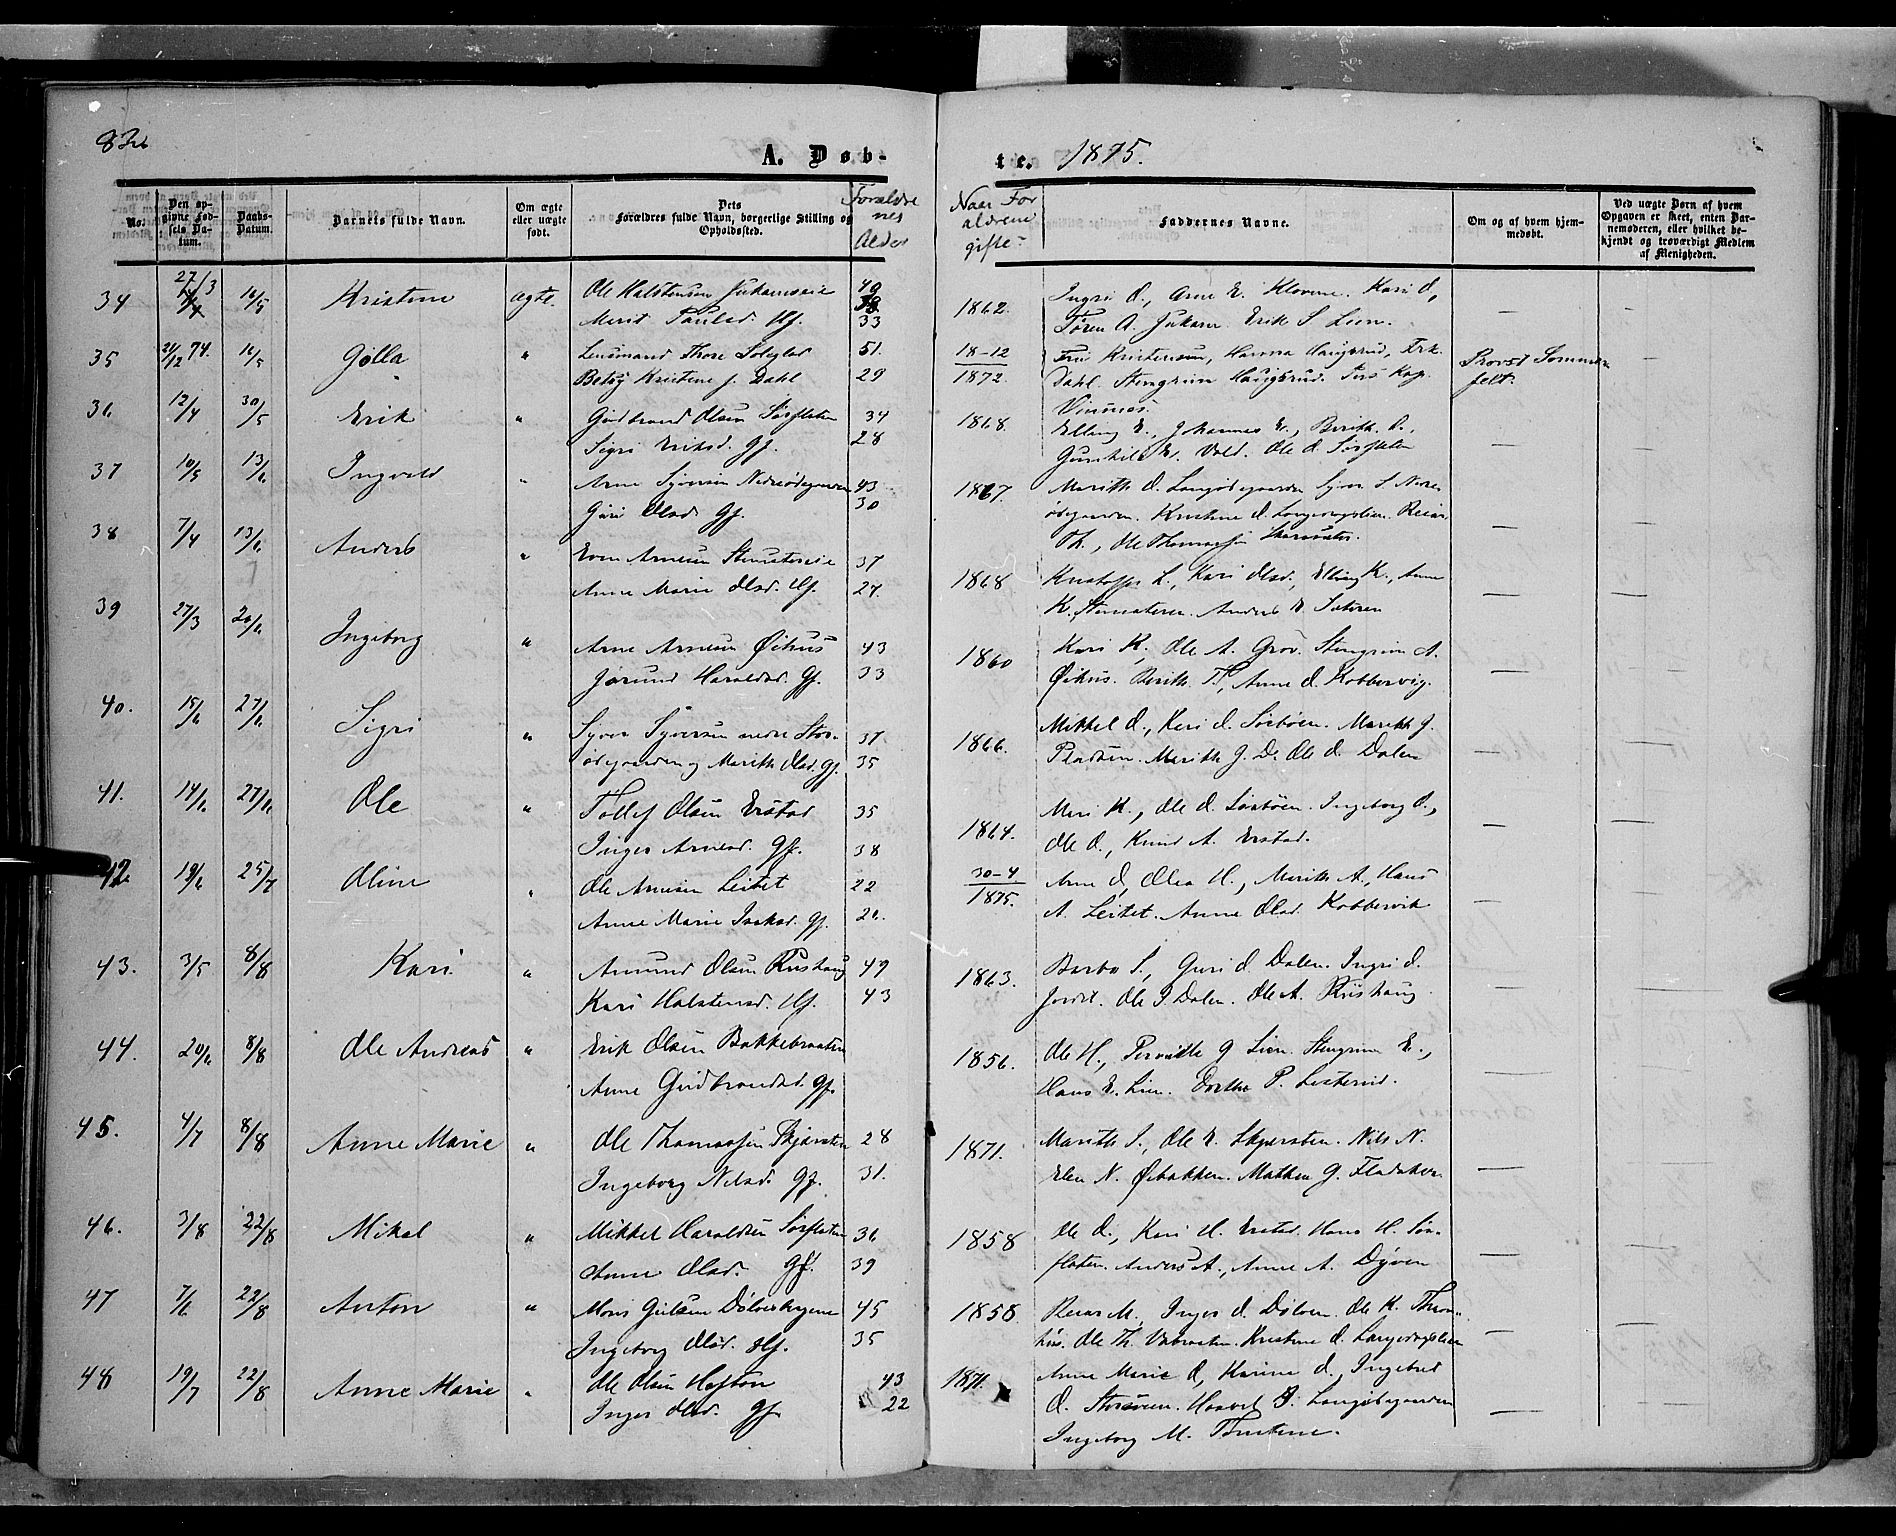 836
A. Døb-
te. 1875.
No.
Den op-
givne Fød-
sels Da-
tum.
Daabs-
Datum.
Barnets fulde Navn.
Om ægte
eller uægte
født.
Dets
Forældres fulde Navn, borgerlige Stilling og
Opholdssted.
Forældre
nes
Alder
Naar For
ældrene
gifte
Faddernes Navne.
Om og af hvem hjem-
medøbt.
Ved uægte Børn af hvem
Opgaven er skeet, enten Bar-
nemoderen, eller hvilket be-
kjendt og troværdigt Medlem
af Menigheden.
34 27/3 16/5 Kristine ægte. Ole Halstensen 49
Marit Paulsd. Hf. 33
1862. Ingri O., Arne E. Klovene. Kari O.,
Tøren A. Jukam. Erik S. Lien.
35 21/12 74. 16/5 Gølla " Lensmand Thore Solglad 51.
Betsy Kristine f. Dahl 29
18-12
1872.
Fru Kristensen, Hanna Haugsrud, Frk.
Dahl. Stengrim Haugsrud. Kap.
Vinnes.
Provst Sommer
felt.
36 12/4 30/5 Erik " Gudbrand Olsen Sørflaten 34
Sigri Eriksd. Gf. 28
1868. Elling E., Johannes E., Berith O.,
Gunhild E. Vold. Ole O. Sørflaten
37 10/5 13/6 Ingvald " Arne Syversen Nedreødegaarden 43
Guri Olsd. Gf. 30
1867. Marith O. Langødegaarden Syver S. Nore
ødegaarden. Kristine O. Langedragslien. Reiar
Th., Ole Thomassen
38 7/4 13/6 Anders " Even Arnesen 37
Anne Marie Olsd. Hf. 27.
1868 Kristoffer L., Kari Olsd., Elling K., Anne
K. Stensæteren. Anders E. Sæteren
39 27/3 20/6 Ingeborg " Arne Arnesen Øihus 43
Jørund Haraldsd. Gf. 33
1860 Kari K., Ole A. Grov. Stengrim A.
Øihus. Berith T., Anne O. Kobbervig.
40. 15/6 27/6 Sigri " Syver Syversen nedre Stor-
37.
ødegaarden og Marith Olsd. Gf. 35
1866. Mikkel O., Kari O. Sørbøen. Marith G.
Pladsen. Marith G. D. Ole O. Dalen
41. 14/6 27/6 Ole " Tollef Olsen Erstad 35
Inger Arnesd. Gf. 38
1864. Mari K., Ole O. Sørbøen. Ingeborg O.,
Ole O., Knud A. Erstad.
42. 19/6 25/7 Oline " Ole Arnesen Leitet 22
Anne Marie Isaksd. Gf. 26.
30-4
1875.
Arne O., Olea H., Marith A., Hans
A. Leitet. Anne Olsd. Kobbervik
43. 3/5 8/8 Kari " Amund Olsen Rushaug 49
Kari Halstensd. Hf. 43
1863. Barbo S., Guri O. Dalen. Ingri O.
Jordet. Ole P. Dalen. Ole A. Riishaug
44. 20/6 8/8 Ole Andreas " Erik Olsen Bakkebraaten
Anne Gudbrandsd. Gf.
1856. Ole H., Pernille G. Lien. Stengrim E.,
Hans E. Lien. Dorthe P.
45. 4/7 8/8 Anne Marie " Ole Thomassen Skjærsten 28
Ingeborg Nilsd. Gf. 31.
1871. Marith S., Ole E. Skjærsten. Nils N.
Elen N. Øibakken. Mathea G. Fladaker.
46. 3/8 22/8 Mikal " Mikkel Haraldsen Sørflaten 36
Anne Olsd. Gf. 39
1858 Ole O., Kari H. Erstad. Hans H. Sør-
flaten. Anders A., Anne A. Døven
47 7/6 22/8 Anton " Mons Gulsen 45
Ingeborg Olsd. Hf. 35
1858 Reiar M., Inger O. Dølven. Ole K. Thron-
hus. Ole Th. Kristine O. Langedragslien
48 19/7 22/8 Anne Marie " Ole Olsen Hafton 43
Inger Olsd. Gf. 22
1871. Anne Marie O., Karine O., Ingebret
O. Storøien. Haavel Langødegaarden
Ingeborg M.